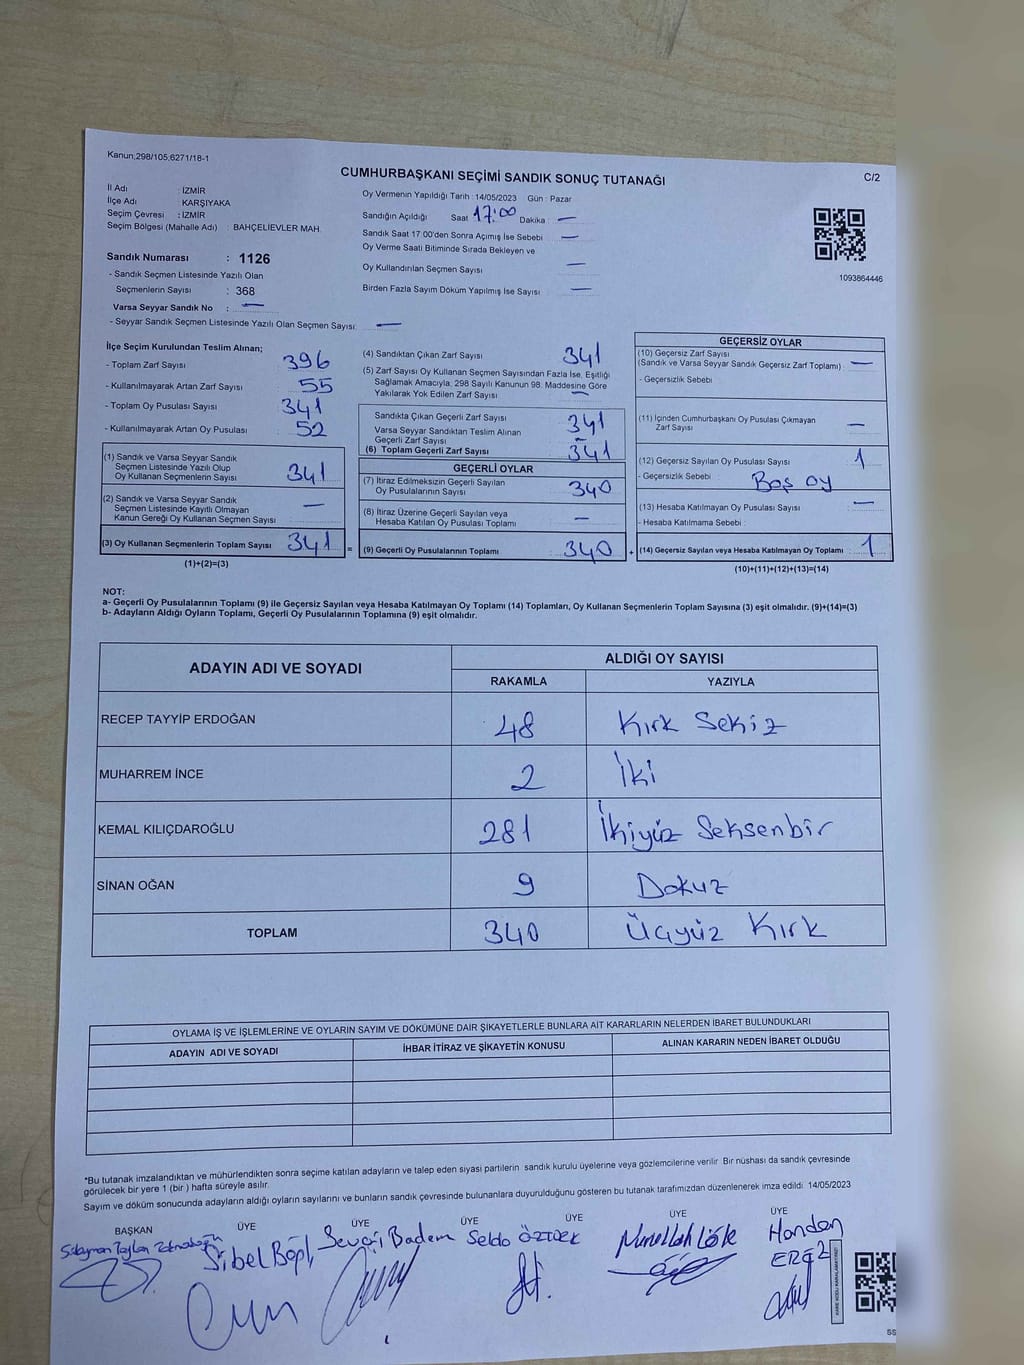 Kanun;298/105;6271/18-1
CUMHURBAŞKANI SEÇİMİ SANDIK SONUÇ TUTANAĞI
C/2
İl Adı : İZMİR
İlçe Adı : KARŞIYAKA
Seçim Çevresi : İZMİR
Seçim Bölgesi (Mahalle Adı) : BAHÇELİEVLER MAH.
Sandık Numarası : 1126
- Sandık Seçmen Listesinde Yazılı Olan
Seçmenlerin Sayısı : 368
Varsa Seyyar Sandık No : —
- Seyyar Sandık Seçmen Listesinde Yazılı Olan Seçmen Sayısı: —
Oy Vermenin Yapıldığı Tarih : 14/05/2023 Gün : Pazar
Sandığın Açıldığı Saat 17:00 Dakika : —
Sandık Saat 17.00'den Sonra Açımış İse Sebebi —
Oy Verme Saati Bitiminde Sırada Bekleyen ve
Oy Kullandırılan Seçmen Sayısı —
Birden Fazla Sayım Döküm Yapılmış İse Sayısı : —
1093864446
İlçe Seçim Kurulundan Teslim Alınan;
- Toplam Zarf Sayısı 396
- Kullanılmayarak Artan Zarf Sayısı 55
- Toplam Oy Pusulası Sayısı 341
- Kullanılmayarak Artan Oy Pusulası 52
(1) Sandık ve Varsa Seyyar Sandık
Seçmen Listesinde Yazılı Olup
Oy Kullanan Seçmenlerin Sayısı 341
(2) Sandık ve Varsa Seyyar Sandık
Seçmen Listesinde Kayıtlı Olmayan
Kanun Gereği Oy Kullanan Seçmen Sayısı : —
(3) Oy Kullanan Seçmenlerin Toplam Sayısı 341 =
(1)+(2)=(3)
(4) Sandıktan Çıkan Zarf Sayısı 341
(5) Zarf Sayısı Oy Kullanan Seçmen Sayısından Fazla İse, Eşitliği
Sağlamak Amacıyla, 298 Sayılı Kanunun 98. Maddesine Göre
Yakılarak Yok Edilen Zarf Sayısı —
Sandıkta Çıkan Geçerli Zarf Sayısı 341
Varsa Seyyar Sandıktan Teslim Alınan
Geçerli Zarf Sayısı —
(6) Toplam Geçerli Zarf Sayısı 341
GEÇERLİ OYLAR
(7) İtiraz Edilmeksizin Geçerli Sayılan
Oy Pusulalarının Sayısı 340
(8) İtiraz Üzerine Geçerli Sayılan veya
Hesaba Katılan Oy Pusulası Toplamı —
(9) Geçerli Oy Pusulalarının Toplamı 340 +
GEÇERSİZ OYLAR
(10) Geçersiz Zarf Sayısı
(Sandık ve Varsa Seyyar Sandık Geçersiz Zarf Toplamı) : —
- Geçersizlik Sebebi :
(11) İçinden Cumhurbaşkanı Oy Pusulası Çıkmayan
Zarf Sayısı —
(12) Geçersiz Sayılan Oy Pusulası Sayısı 1
- Geçersizlik Sebebi : Boş oy
(13) Hesaba Katılmayan Oy Pusulası Sayısı : —
- Hesaba Katılmama Sebebi :
(14) Geçersiz Sayılan veya Hesaba Katılmayan Oy Toplamı : 1
(10)+(11)+(12)+(13)=(14)
NOT:
a- Geçerli Oy Pusulalarının Toplamı (9) ile Geçersiz Sayılan veya Hesaba Katılmayan Oy Toplamı (14) Toplamları, Oy Kullanan Seçmenlerin Toplam Sayısına (3) eşit olmalıdır. (9)+(14)=(3)
b- Adayların Aldığı Oyların Toplamı, Geçerli Oy Pusulalarının Toplamına (9) eşit olmalıdır.
ADAYIN ADI VE SOYADI ALDIĞI OY SAYISI
RAKAMLA YAZIYLA
RECEP TAYYİP ERDOĞAN 48 Kırk Sekiz
MUHARREM İNCE 2 İki
KEMAL KILIÇDAROĞLU 281 İkiyüz Seksenbir
SİNAN OĞAN 9 Dokuz
TOPLAM 340 Üçyüz Kırk
OYLAMA İŞ VE İŞLEMLERİNE VE OYLARIN SAYIM VE DÖKÜMÜNE DAİR ŞİKAYETLERLE BUNLARA AİT KARARLARIN NELERDEN İBARET BULUNDUKLARI
ADAYIN ADI VE SOYADI İHBAR İTİRAZ VE ŞİKAYETİN KONUSU ALINAN KARARIN NEDEN İBARET OLDUĞU
*Bu tutanak imzalandıktan ve mühürlendikten sonra seçime katılan adayların ve talep eden siyasi partilerin sandık kurulu üyelerine veya gözlemcilerine verilir. Bir nüshası da sandık çevresinde
görülecek bir yere 1 (bir ) hafta süreyle asılır.
Sayım ve döküm sonucunda adayların aldığı oyların sayılarını ve bunların sandık çevresinde bulunanlara duyurulduğunu gösteren bu tutanak tarafımızdan düzenlenerek imza edildi. 14/05/2023
BAŞKAN ÜYE ÜYE ÜYE ÜYE ÜYE ÜYE
Sibel Sevgi Badem Selda ÖZTÜRK Handan